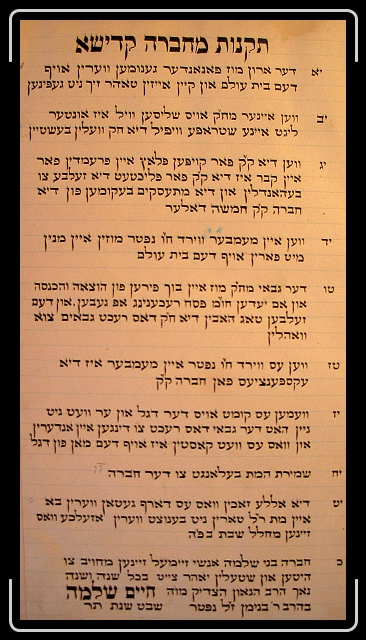 תקנות מחברה קדישא
יא דער ארון מוז פאנאנדער גענומען ווערין אויף
דעם בית עולם און קיין אייזין טאהר זיך ניט געפינען
יב ווען איינער מח״ק אויס שליסען וויל איז אונטער
ליגט איינע שטראפע וויפיל דיא חק וועלין בעשטיין
יג ווען דיא ק״ק פאר קויפען פלאץ איין פרעמדין פאר
איין קבר איז דיא ק״ק פאר פליכטעט דיא זעלבע צו
בעהאנדלין און דיא מתעסקים בעקומען פון דיא
חברה ק״ק חמשה דאלער
יד ווען איין מעמבער ווירד ח״ו נפטר מוזין איין מנין
מיט פארין אויף דעם בית עולם
טו דער גבאי מח״ק מוז איין בוך פירען פון הוצאה והכנסה
און אם יעדען חוה״מ פסח רעכענינג אפ געבען און דעם
זעלבען טאג האבין דיא ח״ק דאס רעכט גבאים צוא
וואהלין
טז ווען עס ווירד ח״ו נפטר איין מעמבער איז דיא
עקספענציעס פאן חברה ק״ק
יז וועמען עס קומט אויס דער דגל און ער וועט ניט
גיין האט דער גבאי דאס רעכט צו דינגען איין אנדערין
און וואס עס וועט קאסטין איז אויף דעם מאן פון דגל
יח שמירת המת בעלאנגט צו דער חברה
יט דיא אללע זאכין וואס עס דארף געטאן ווערין בא
איין מת ר״ל טארין ניט בענוצט ווערין אזעלכע וואס
זיינען מחלל שבת
כ חברה בני שלמה אנשי זיימעל זיינען מחויב צו
היטען און שטעלין יאהר צייט בכל שנה ושנה
נאך הרב הגאון הצדיק מוה חיים שלמה
בהרב ר׳ בנימן ז״ל נפטר שבט שנת תר